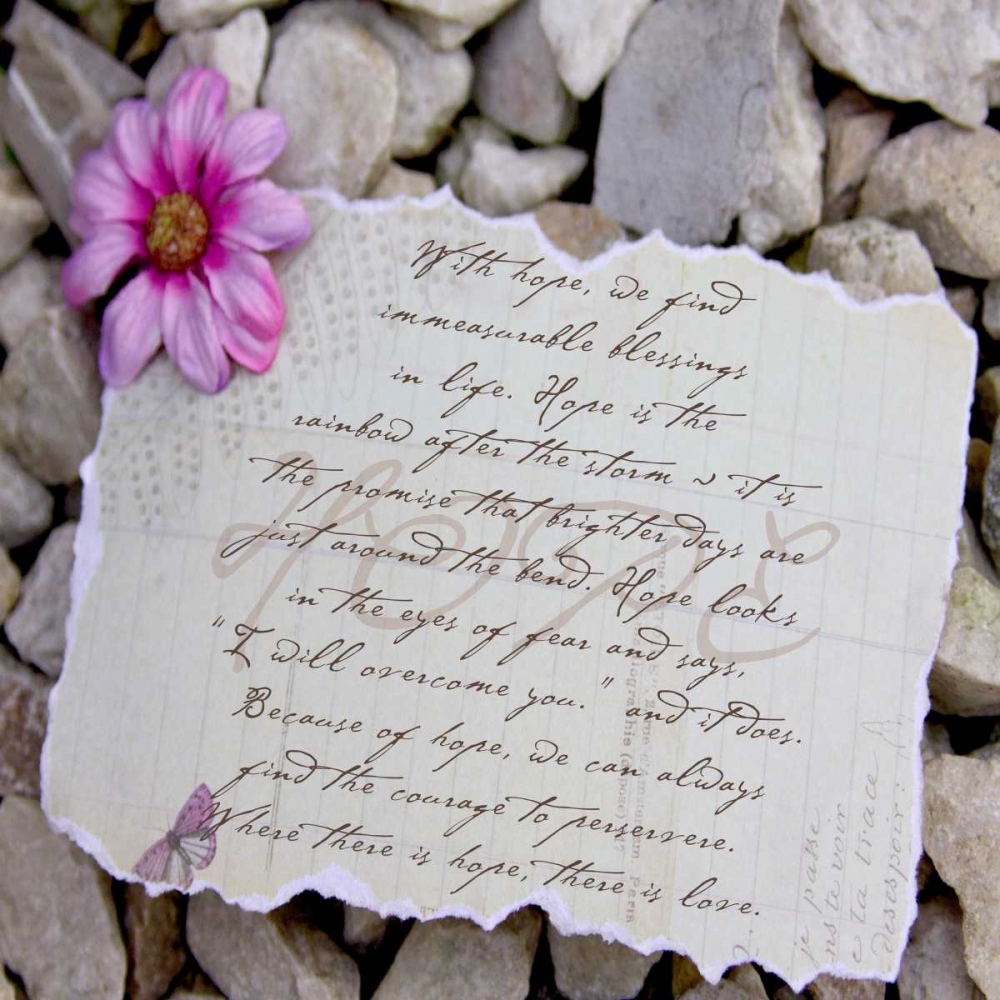 With hope, we find
immeasurable blessings
in life. Hope is the
rainbow after the storm ~ it is
the promise that brighter days are
just around the bend. Hope looks
in the eyes of fear and says,
"I will overcome you." and it does.
Because of hope, we can always
find the courage to perservere.
Where there is hope, there is love.
HOPE
je passe
ns te voir
e ta trace
desespoir: